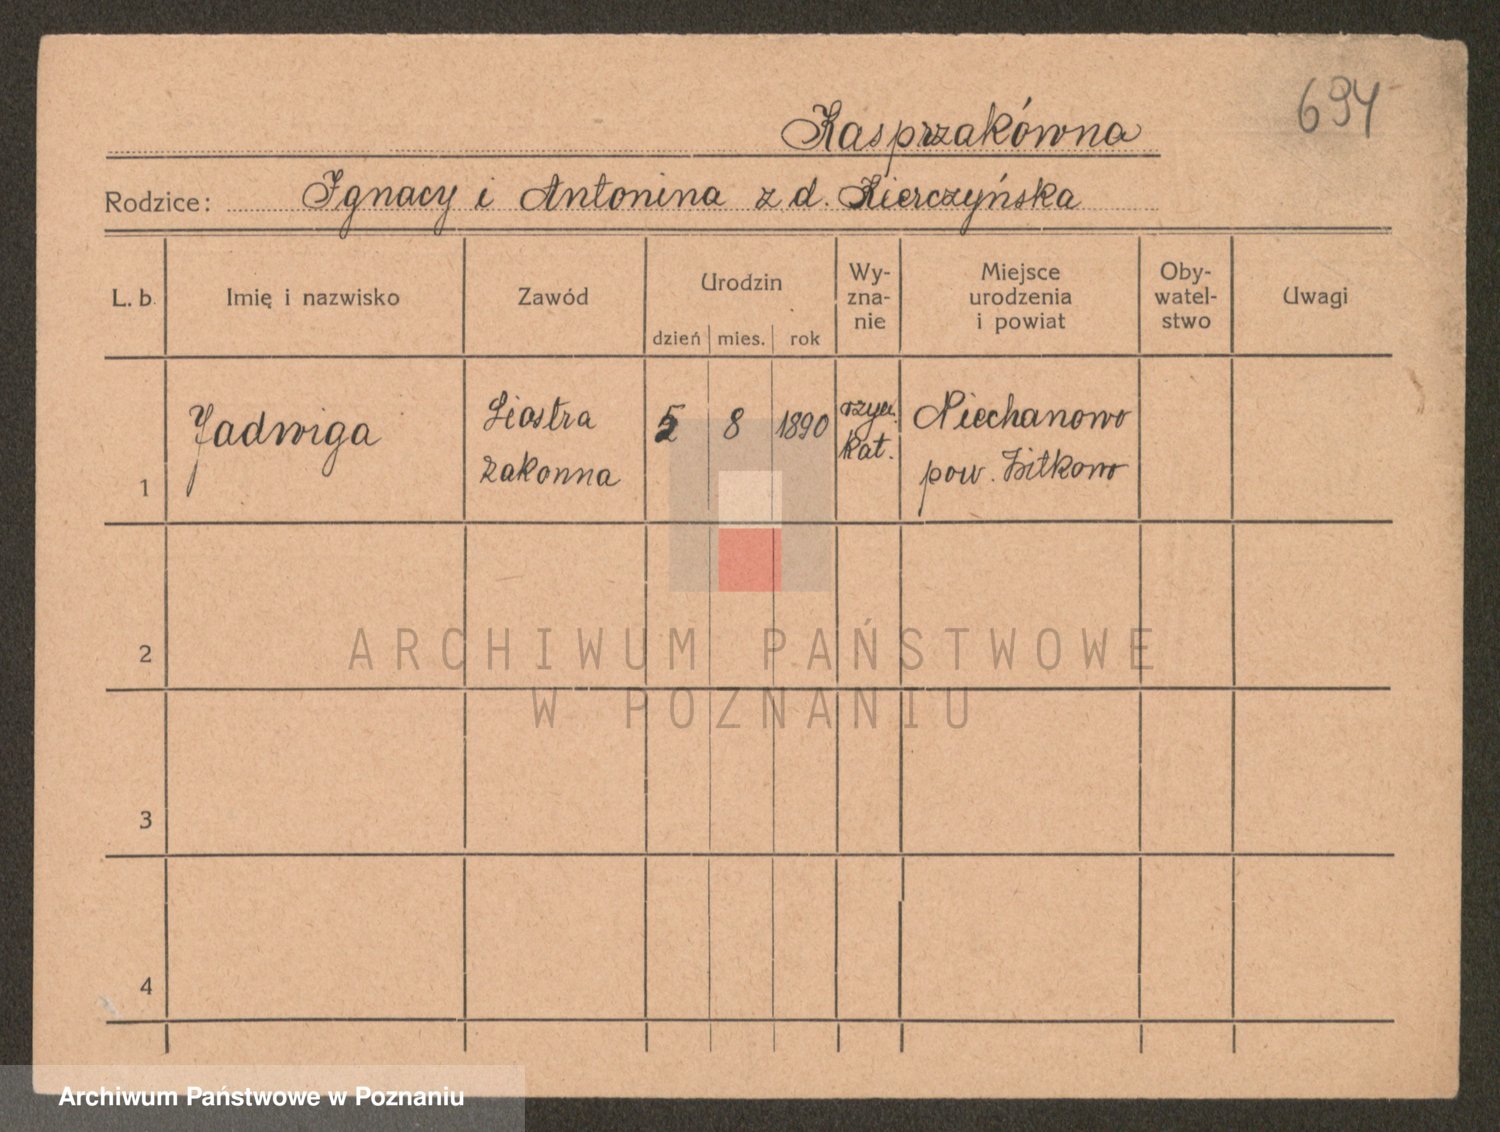 694
Kasprzakówna
Rodzice: Ignacy i Antonina z d. Kierczyńska
L. b. Imię i nazwisko Zawód Urodzin dzień mies. rok Wy-zna-nie Miejsce urodzenia i powiat Oby-watel-stwo Uwagi
1 Jadwiga Siostra zakonna 5 8 1890 rzym. kat. Niechanowo pow. Witkowo
2
ARCHIWUM PAŃSTWOWE
W POZNANIU
3
4
Archiwum Państwowe w Poznaniu